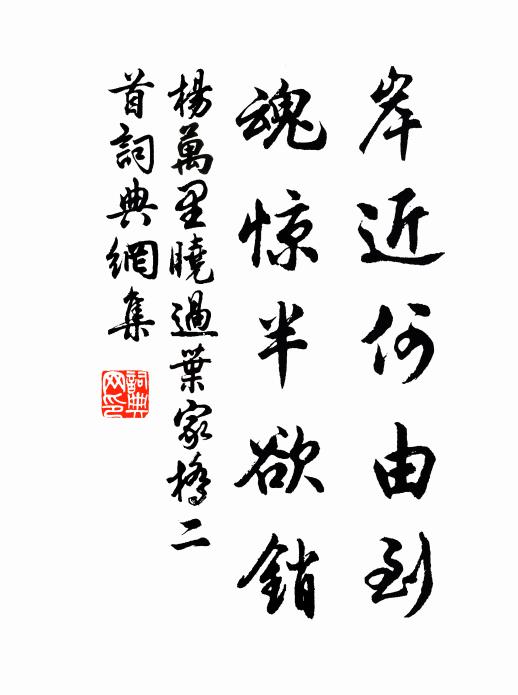 岸近何由到
魂惊半欲銷
楊萬里曉過葉家橋二
首詞典網集
詞典
网印